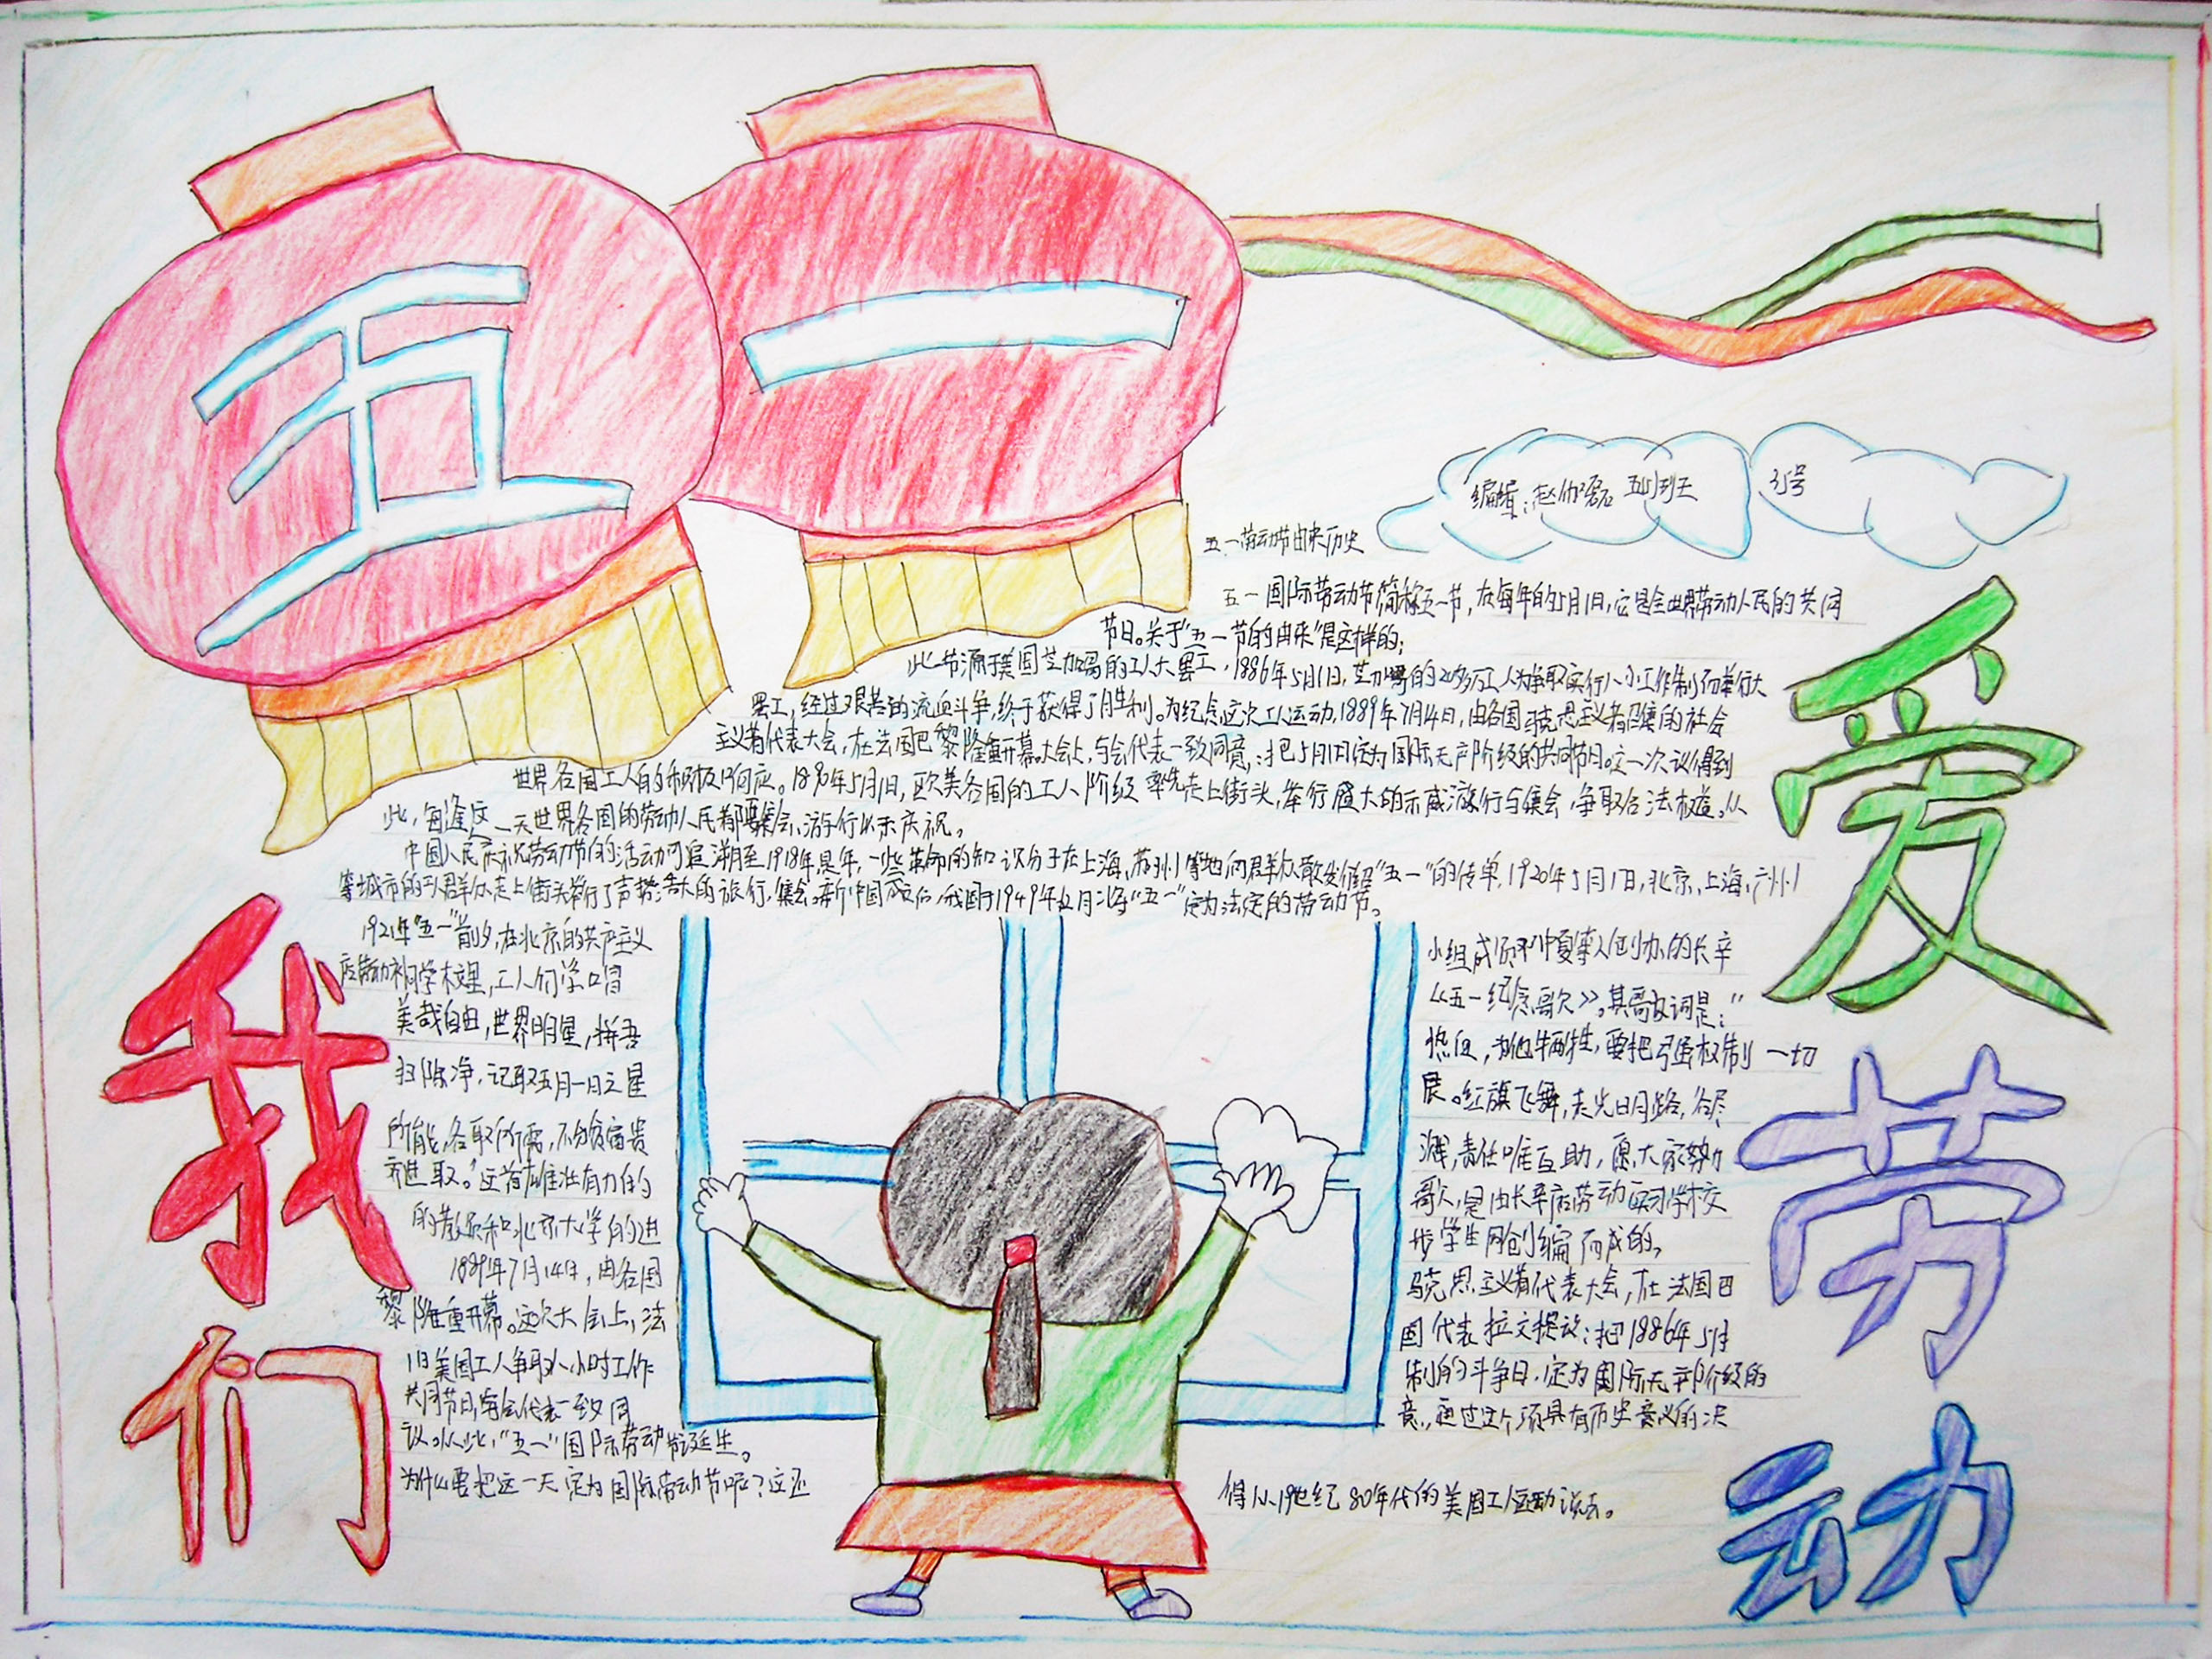 五一
编辑:赵 班 35号
五一劳动节由来历史
五一国际劳动节简称五一节,在每年的5月1日,它是全世界劳动人民的共同
节日。关于"五一节的由来"是这样的:
此节源于美国芝加哥的工人大罢工,1886年5月1日,芝加哥的20多万工人为争取实行八小工作制而举行大
罢工,经过艰苦的流血斗争,终于获得了胜利。为纪念这次工人运动,1889年7月14日,由各国马克思主义者召集的社会
主义者代表大会,在法国巴黎隆重开幕。大会上,与会代表一致同意,:把5月1日定为国际无产阶级的共同节日。这一次议得到
世界各国工人的积极响应。1890年5月1日,欧美各国的工人阶级率先走上街头,举行盛大的示威游行与集会,争取合法权益。从
此,每逢这一天世界各国的劳动人民都要集会、游行以示庆祝。
中国人民庆祝劳动节的活动可追溯至1918年是年,一些革命的知识分子在上海、苏州等地向群众散发介绍"五一"的传单,1920年5月1日,北京、上海、广州
等城市的工人群众走上街头举行了声势浩大的旅行,集会。新中国成立后,我国于1949年12月将"五一"定为法定的劳动节。
1921年"五一"前夕,在北京的共产主义
小组成员邓中夏等人创办的长辛
店劳动补习学校里,工人们学唱
《五一纪念歌》。其歌词是:"
美哉自由,世界明星,拼吾
热血,为他牺牲,要把强权制一切
扫除净,记取五月一日之星
展。红旗飞舞,走光明路,各尽
所能,各取所需,不分贫富贵
贱,责任唯互助,愿大家努力
齐进取。"这首雄壮有力的
歌,是由长辛店劳动实习学校
的教员和北京大学的进
步学生同创编而成的。
1889年7月14日,由各国
马克思主义者代表大会,在法国巴
黎隆重开幕。这次大会上,法
国代表拉文提议:把1886年5月
1日美国工人争取八小时工作
制的斗争日,定为国际无产阶级的
共同节日,与会代表一致同
意,通过这个项具有历史意义的决
议。从此,"五一"国际劳动节诞生。
为什么要把这一天定为国际劳动节呢?这还
得从19世纪80年代的美国工人运动说去。
我们
爱劳动